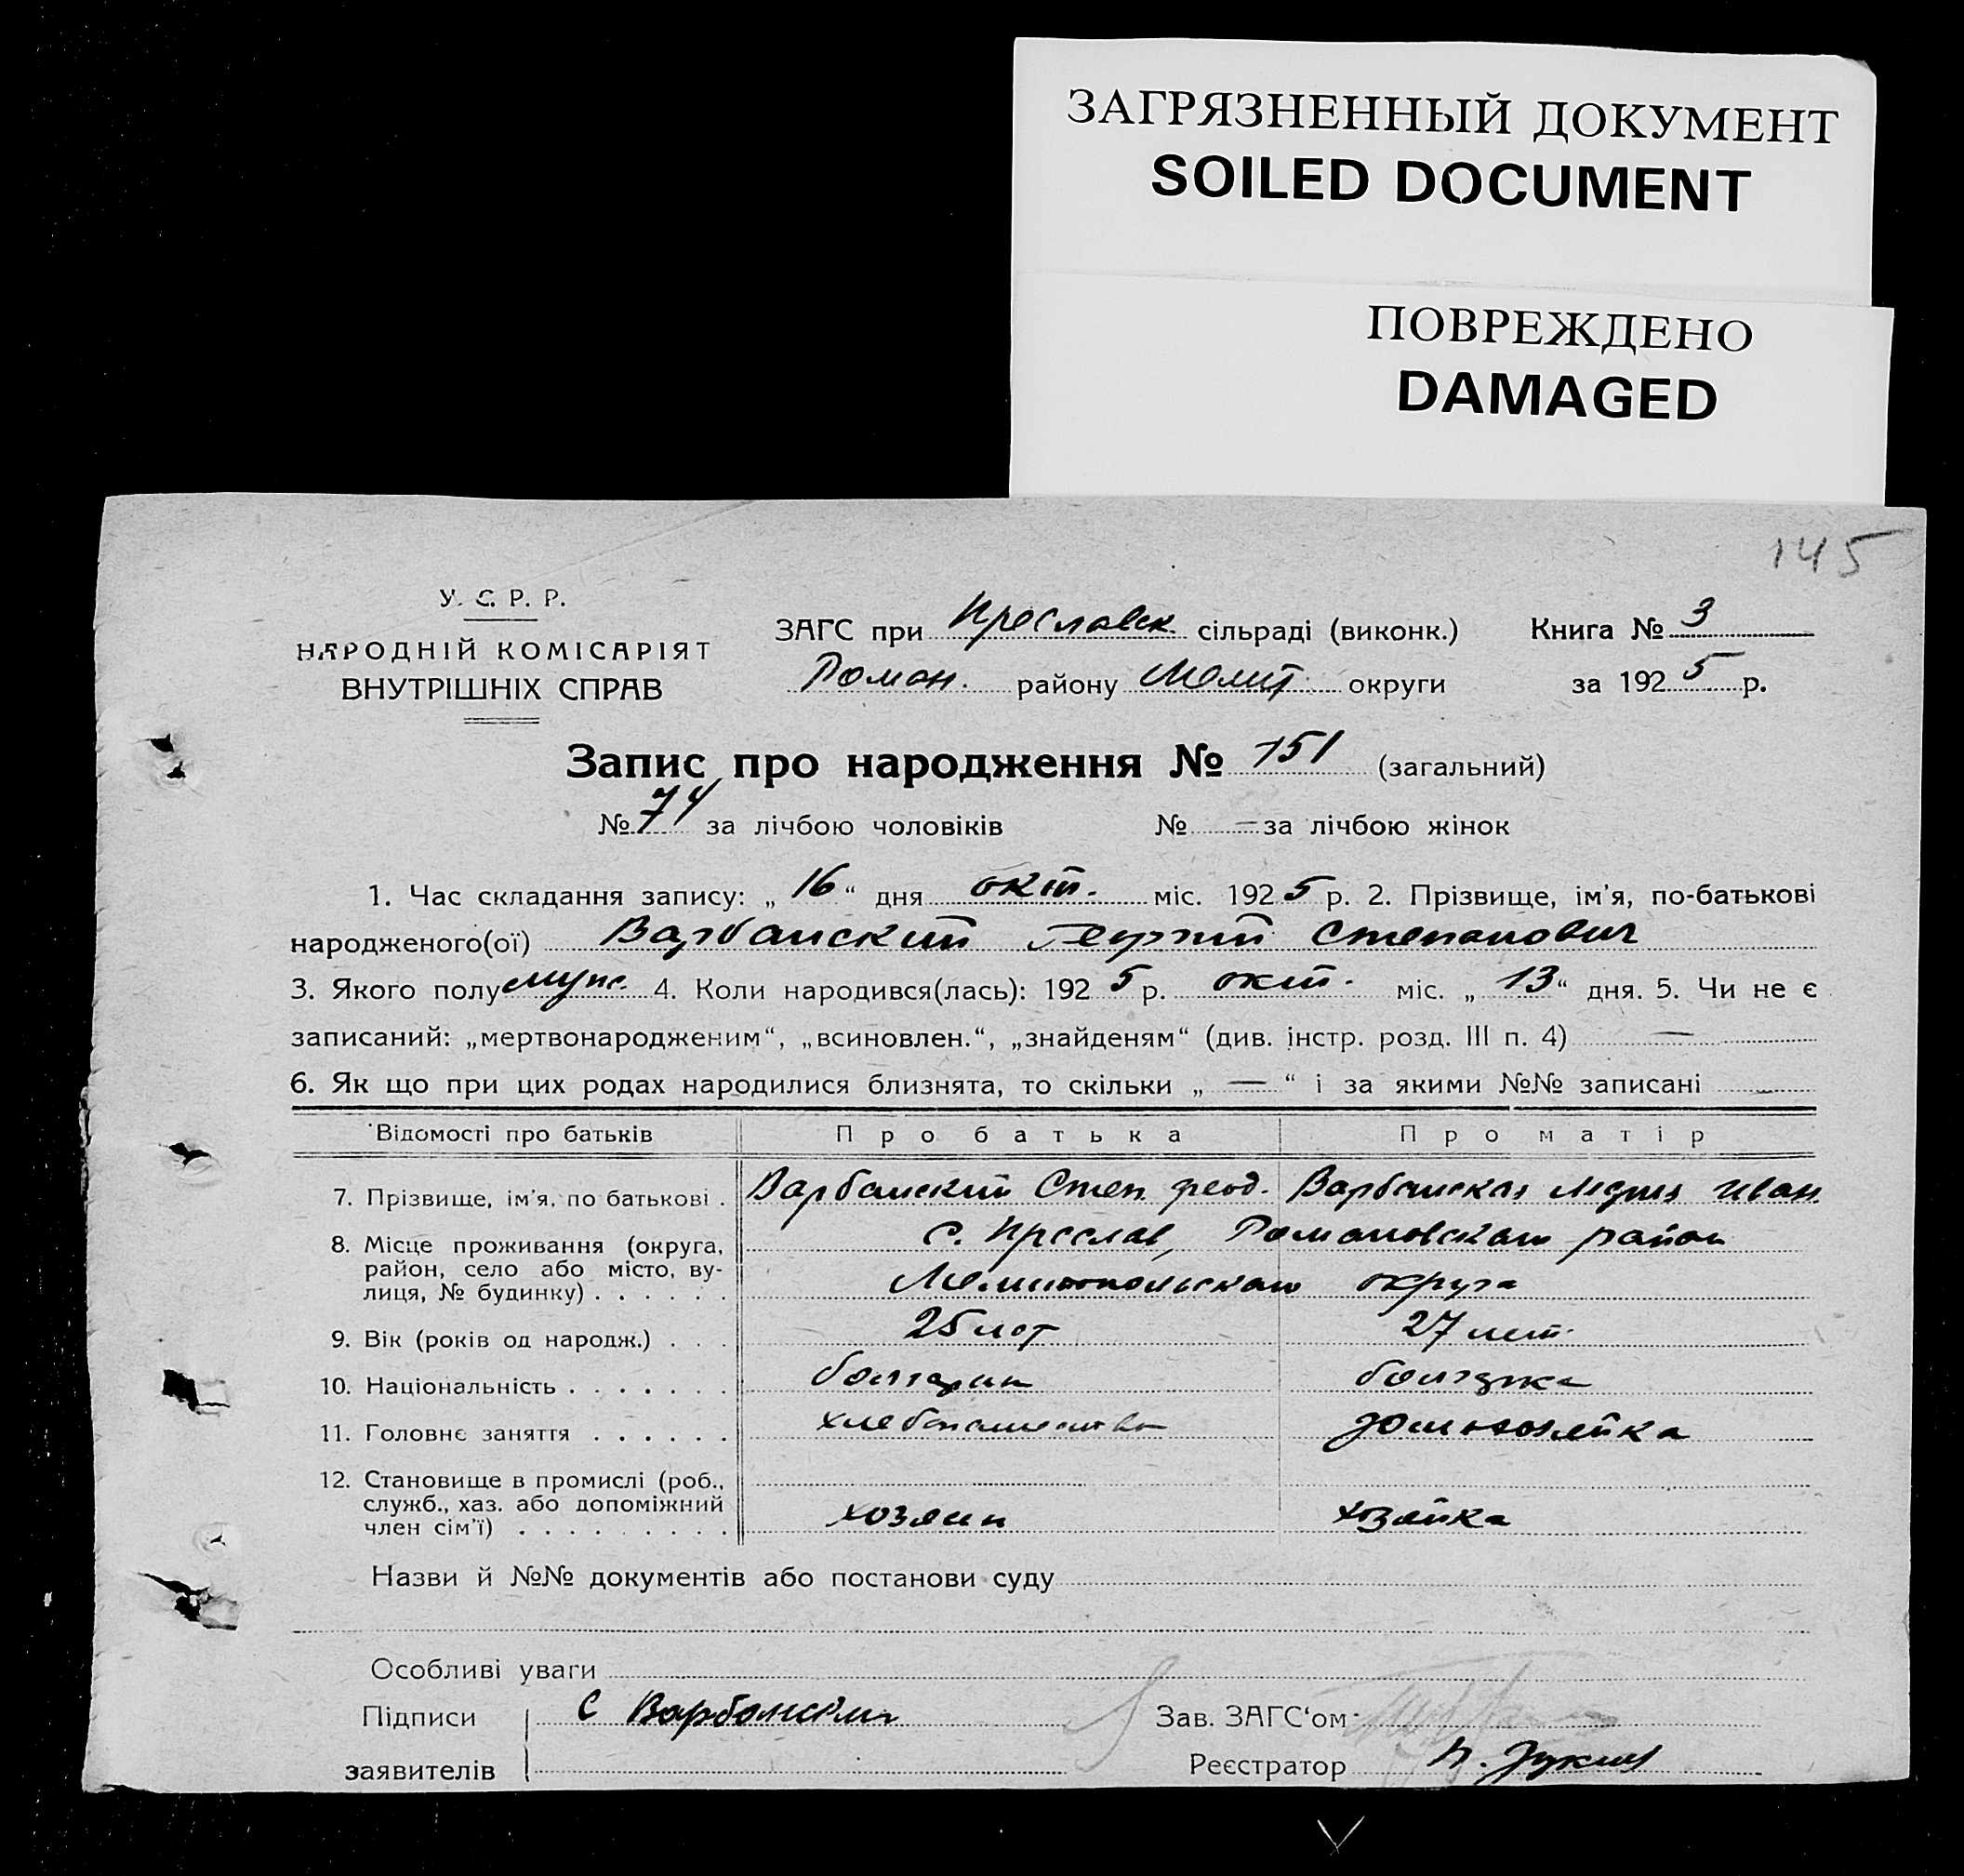 ЗАГРЯЗНЕННЫЙ ДОКУМЕНТ
SOILED DOCUMENT
ПОВРЕЖДЕНО
DAMAGED
145
У. С. Р. Р.
НАРОДНІЙ КОМІСАРІЯТ
ВНУТРІШНІХ СПРАВ
ЗАГС при Преславск. сільраді (виконк.) Книга № 3
Роман. району Мелит. округи за 1925 р.
Запис про народження № 151 (загальний)
№ 74 за лічбою чоловіків № — за лічбою жінок
1. Час складання запису: „ 16 “ дня окт. міс. 1925 р. 2. Прізвище, ім'я, по-батькові
народженого(ої) Варбанский Георгий Степанович
3. Якого полу муж. 4. Коли народився(лась): 1925 р. окт. міс. „ 13 “ дня. 5. Чи не є
записаний: „мертвонародженим“, „всиновлен.“, „знайденям“ (див. інстр. розд. III п. 4) —
6. Як що при цих родах народилися близнята, то скільки „ — “ і за якими №№ записані —
Відомості про батьків Про батька Про матір
7. Прізвище, ім'я, по батькові . Варбанский Степ. феод. Варбанская Мария Иван.
8. Місце проживання (округа, с. Преслав, Романовскаго район
район, село або місто, ву-
лиця, № будинку) . . . . . . Мелитопольскаго округа
9. Вік (років од народж.) . . . 25 лет 27 лет.
10. Національність . . . . . . . болгарин болгарка
11. Головне заняття . . . . . . хлебопашество домхозяйка
12. Становище в промислі (роб.,
служб., хаз. або допоміжний
член сім'ї) . . . . . . . . . хозяин хозяйка
Назви й №№ документів або постанови суду
Особливі уваги
Підписи С Варбански Зав. ЗАГС'ом
заявителів Реєстратор